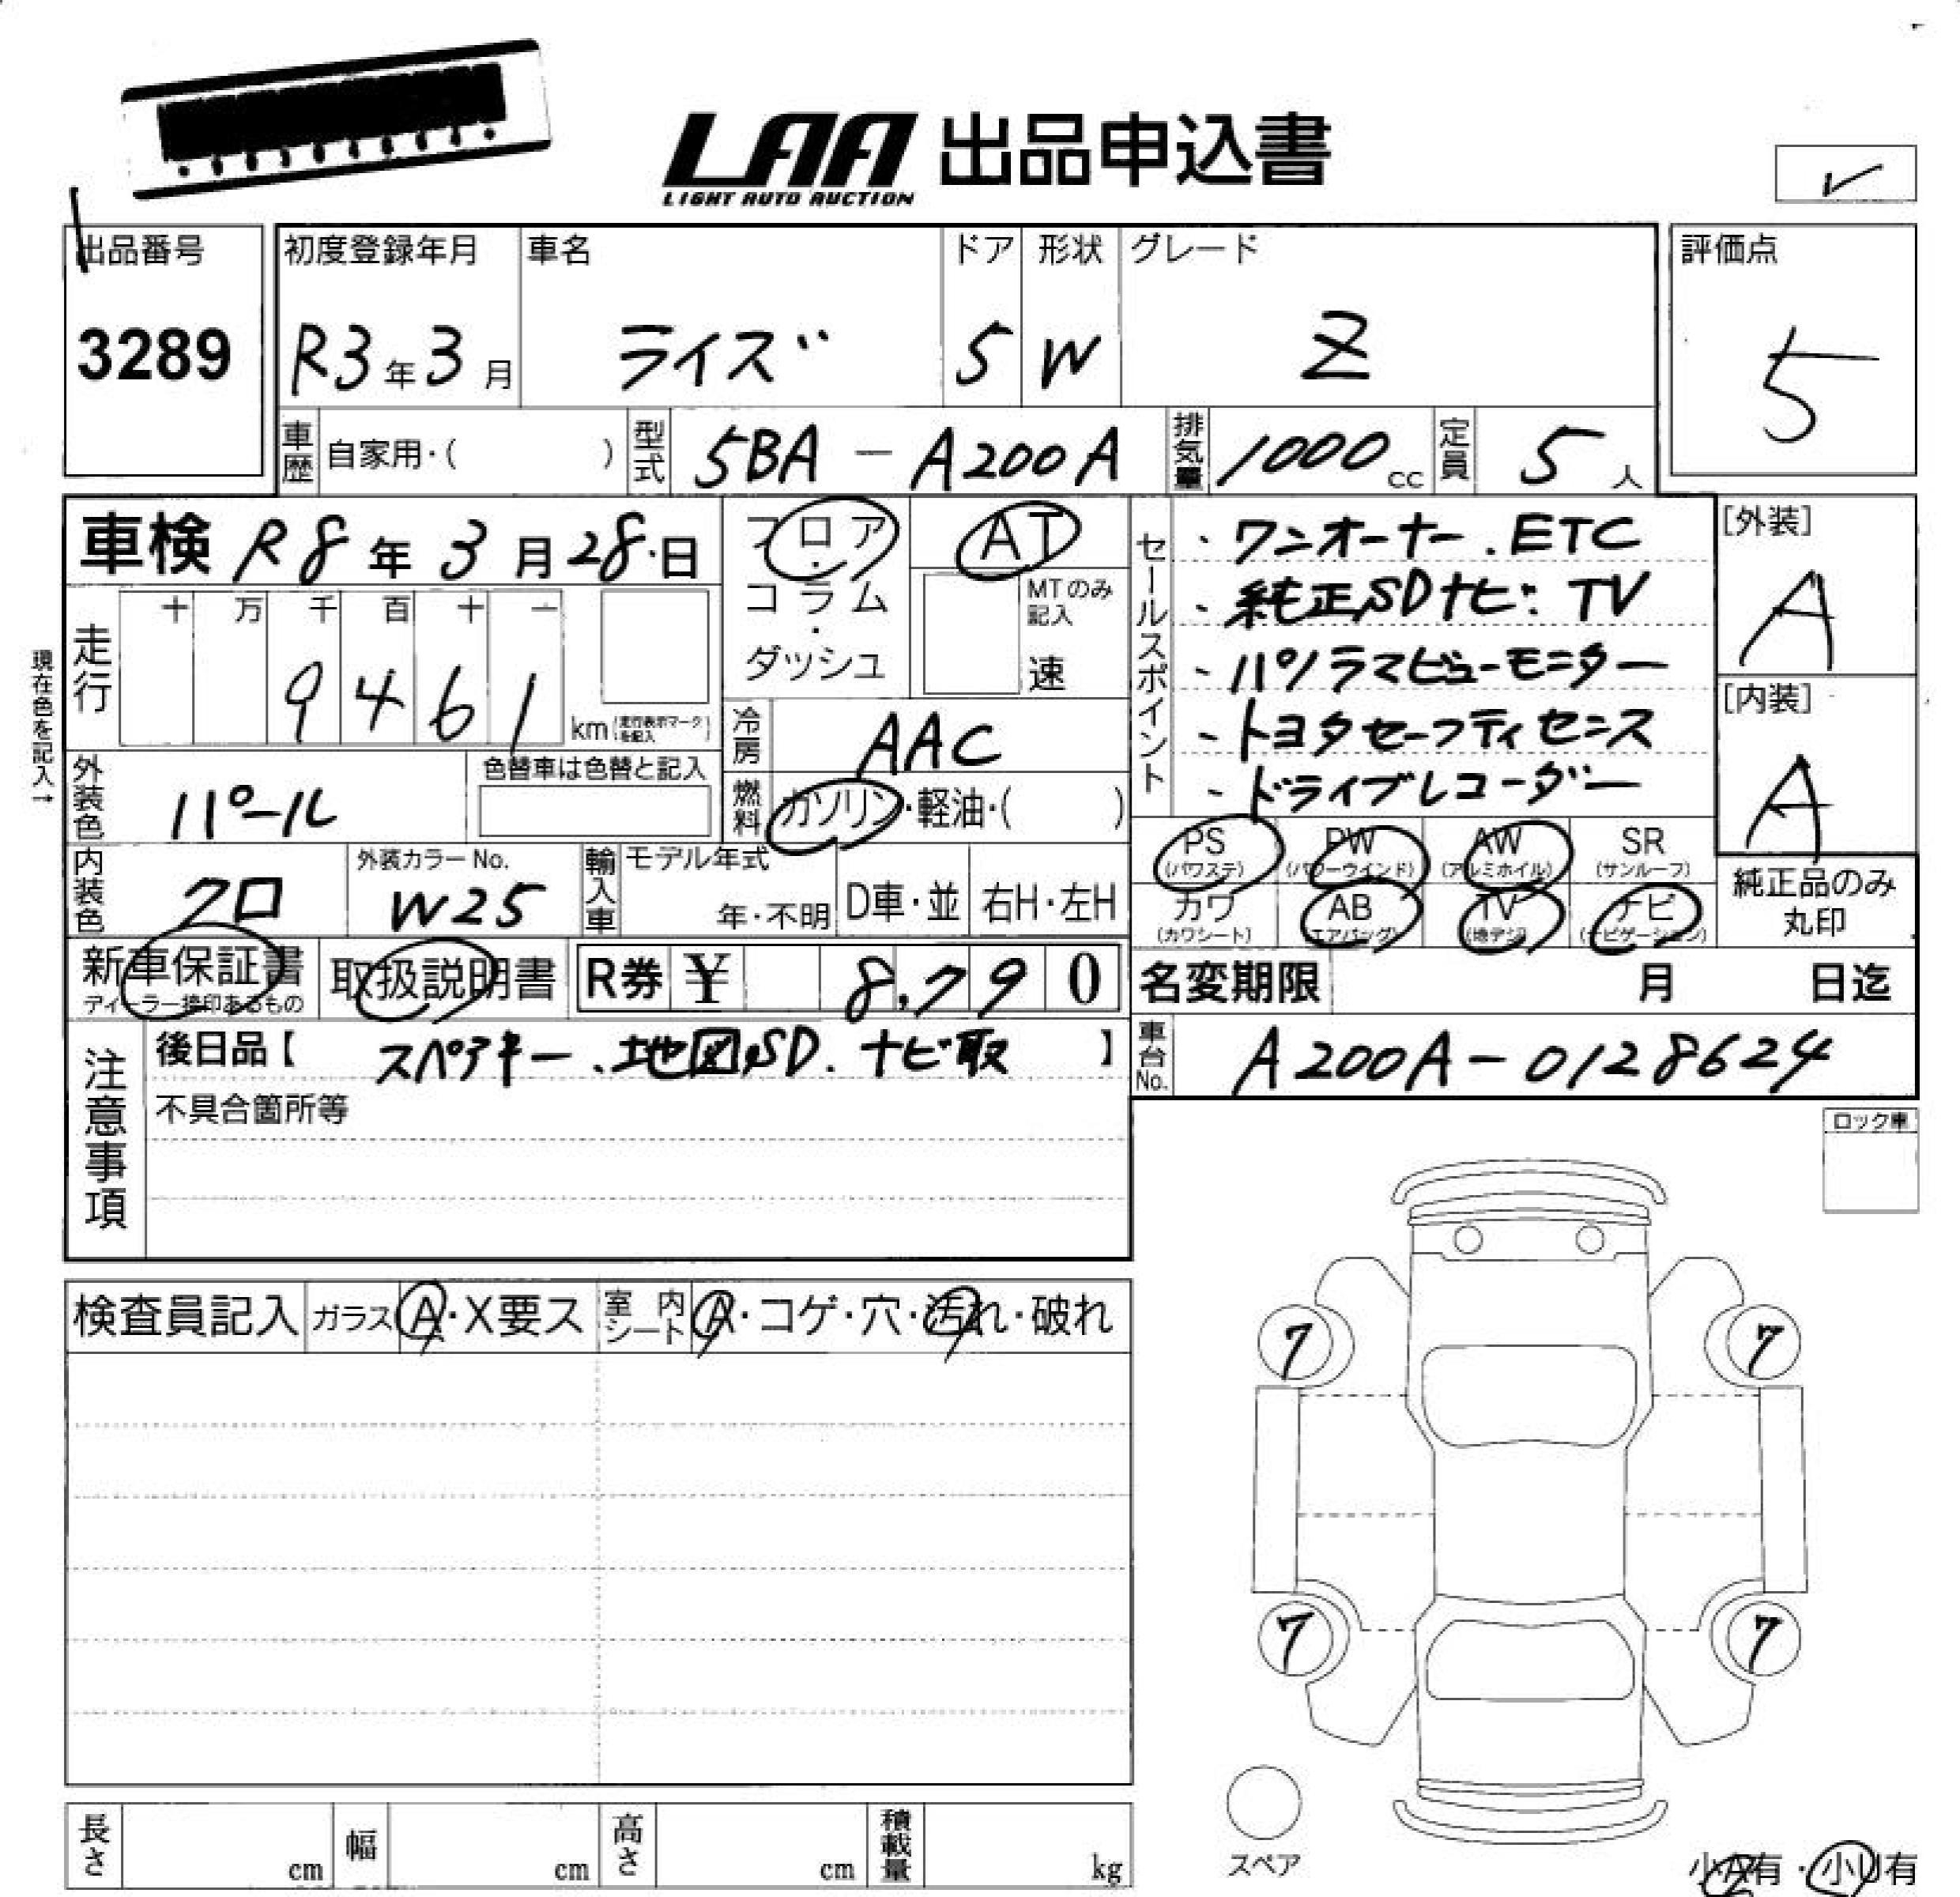 LAA 出品申込書
LIGHT AUTO AUCTION
出品番号
3289
初度登録年月
R3年3月
車名
ライズ
ドア
5
形状
W
グレード
Z
評価点
5
車歴 自家用・( )
型式 5BA - A200A
排気量 1000 cc
定員 5 人
車検 R8年3月28日
フロア・コラム・ダッシュ
AT
MTのみ記入
速
走行
十 万 千 百 十 一
9461 km (走行表示マークを記入)
現在色を記入→
外装色 パール
色替車は色替と記入
冷房 AAC
燃料 ガソリン・軽油・( )
内装色 クロ
外装カラーNo.
W25
輸入車
モデル年式
年・不明
D車・並
右H・左H
セールスポイント
・ワンオーナー.ETC
・純正SDナビ.TV
・パノラマビューモニター
・トヨタセーフティセンス
・ドライブレコーダー
[外装]
A
[内装]
A
PS (パワステ)
PW (パワーウインド)
AW (アルミホイル)
SR (サンルーフ)
カワ (カワシート)
AB (エアバッグ)
TV (地デジ)
ナビ (ナビゲーション)
純正品のみ丸印
新車保証書
ディーラー捺印あるもの
取扱説明書
R券 ¥ 8,790
名変期限 月 日迄
車台No. A200A-0128624
注意事項
後日品【 スペアキー.地図SD.ナビ取 】
不具合箇所等
ロック車
検査員記入
ガラス A・X要ス
室内シート A・コゲ・穴・汚れ・破れ
7 7
7 7
スペア
長さ cm
幅 cm
高さ cm
積載量 kg
小A有・小U有